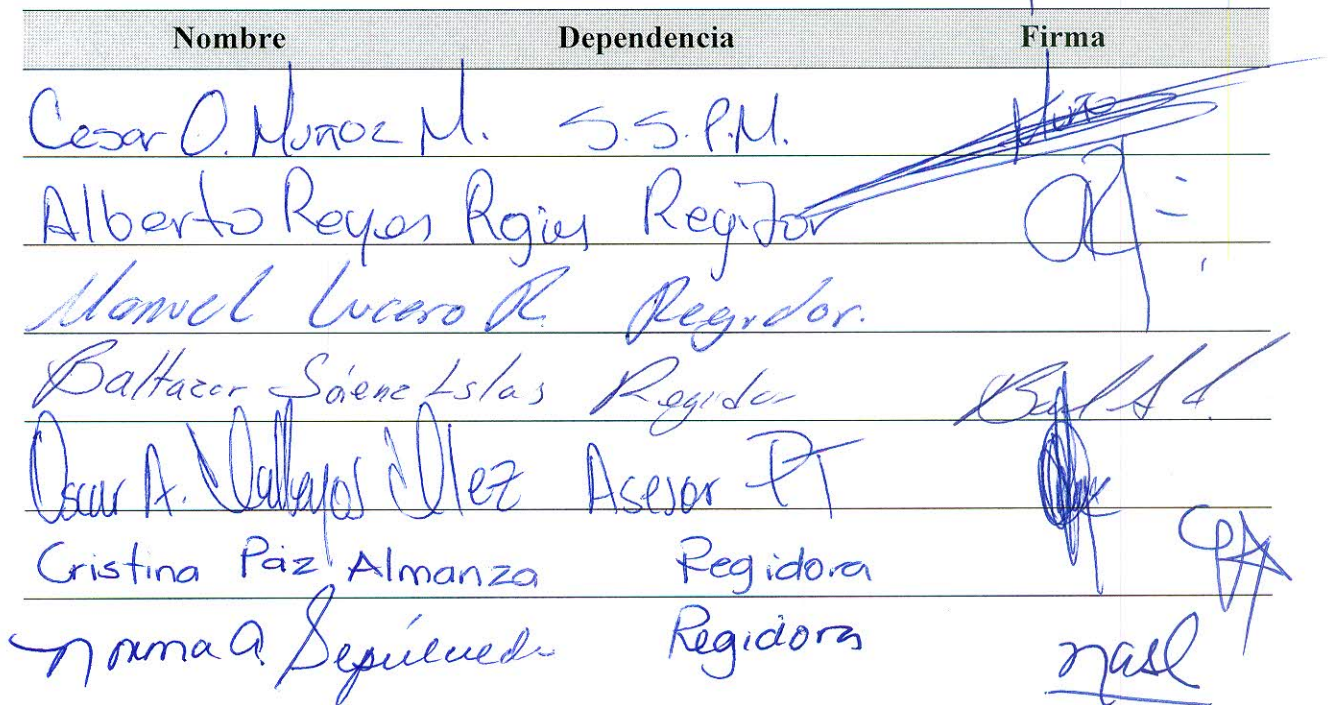 Nombre Dependencia Firma
Cesar O. Muñoz M. S.S.P.M. Muño
Alberto Reyes Rojas Regidor
Manuel Lucero R. Regidor.
Baltazar Sáenz Islas Regidor
Oscar A. Vallejos Asesor PT
Cristina Páz Almanza Regidora
Norma A. Sepúlveda Regidora nasl